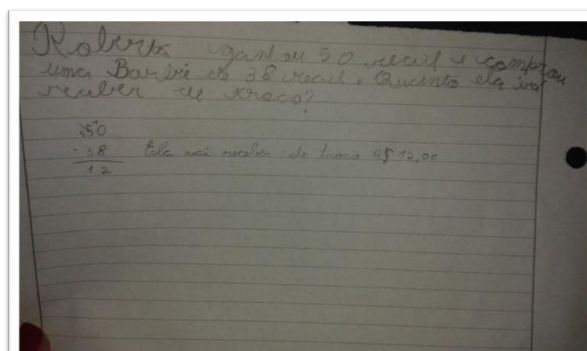 Roberta ganhou 50 reais e comprou
uma Barbie de 38 reais. Quanto ela irá
receber de troco?
50
- 38
12
Ela vai receber de troco R$ 12,00